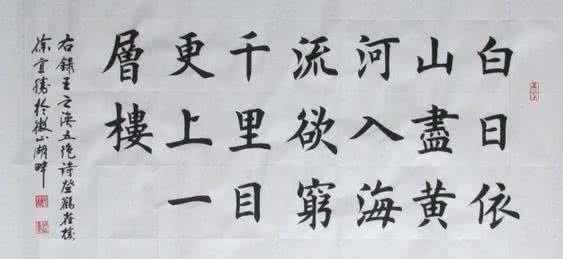 白日依
山盡黃
河入海
流欲窮
千里目
更上一
層樓
右錄王之渙五絕詩登鸛雀樓
徐於微山湖畔